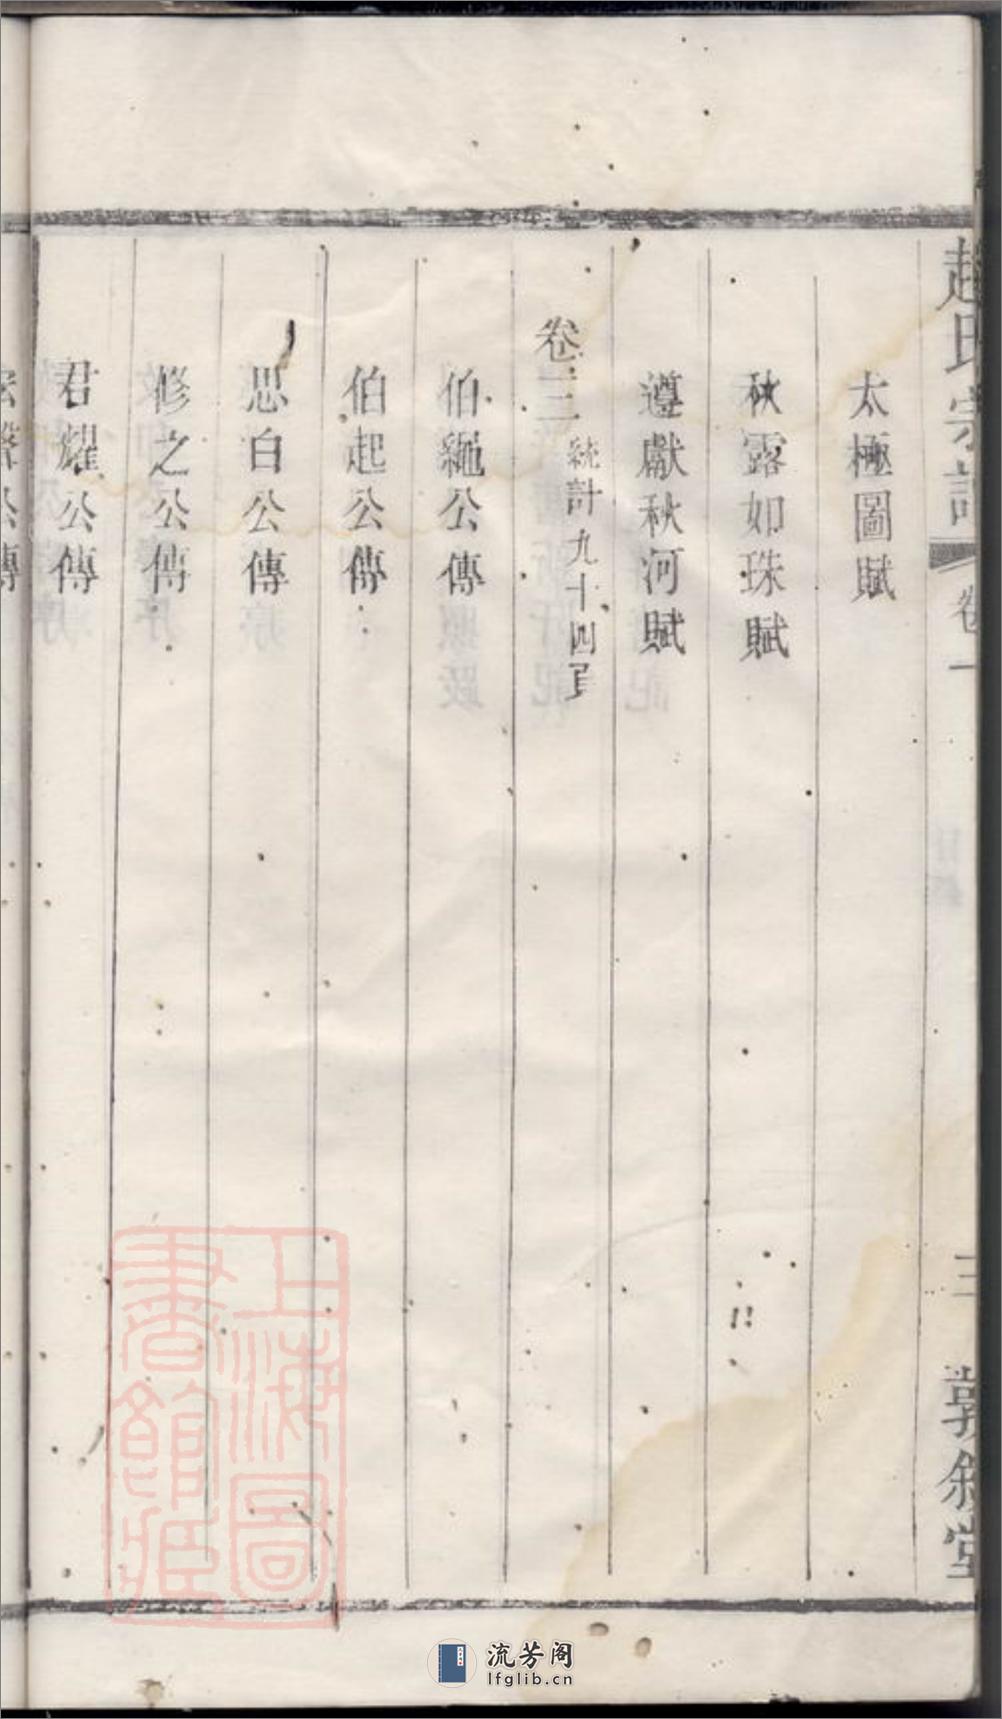 趙氏宗譜 卷一 三 敦敘堂
太極圖賦
秋露如珠賦
遵獻秋河賦
卷三 統計九十四頁
伯繩公傳
伯起公傳
思白公傳
修之公傳
君耀公傳
聲公傳
上海圖書館藏
流芳阁
lfglib.cn